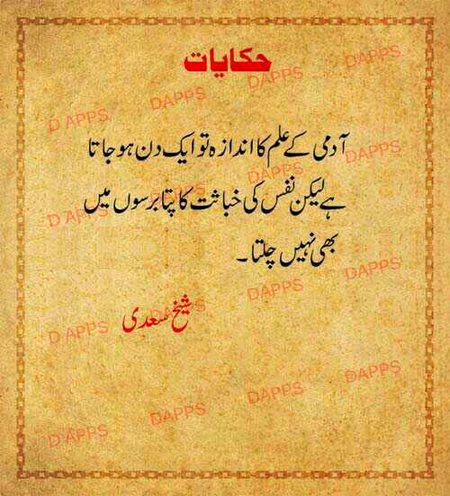 حکایات
آدمی کے علم کا اندازہ تو ایک دن ہو جاتا
ہے لیکن نفس کی خباثت کا پتا برسوں میں
بھی نہیں چلتا۔
شیخ سعدی
D APPS
DAPPS
DAPPS
DAPPS
D APPS
DAPPS
DAPPS
DAPPS
D APPS
DAPPS
DAPPS
DAPPS
D APPS
DAPPS
DAPPS
DAPPS